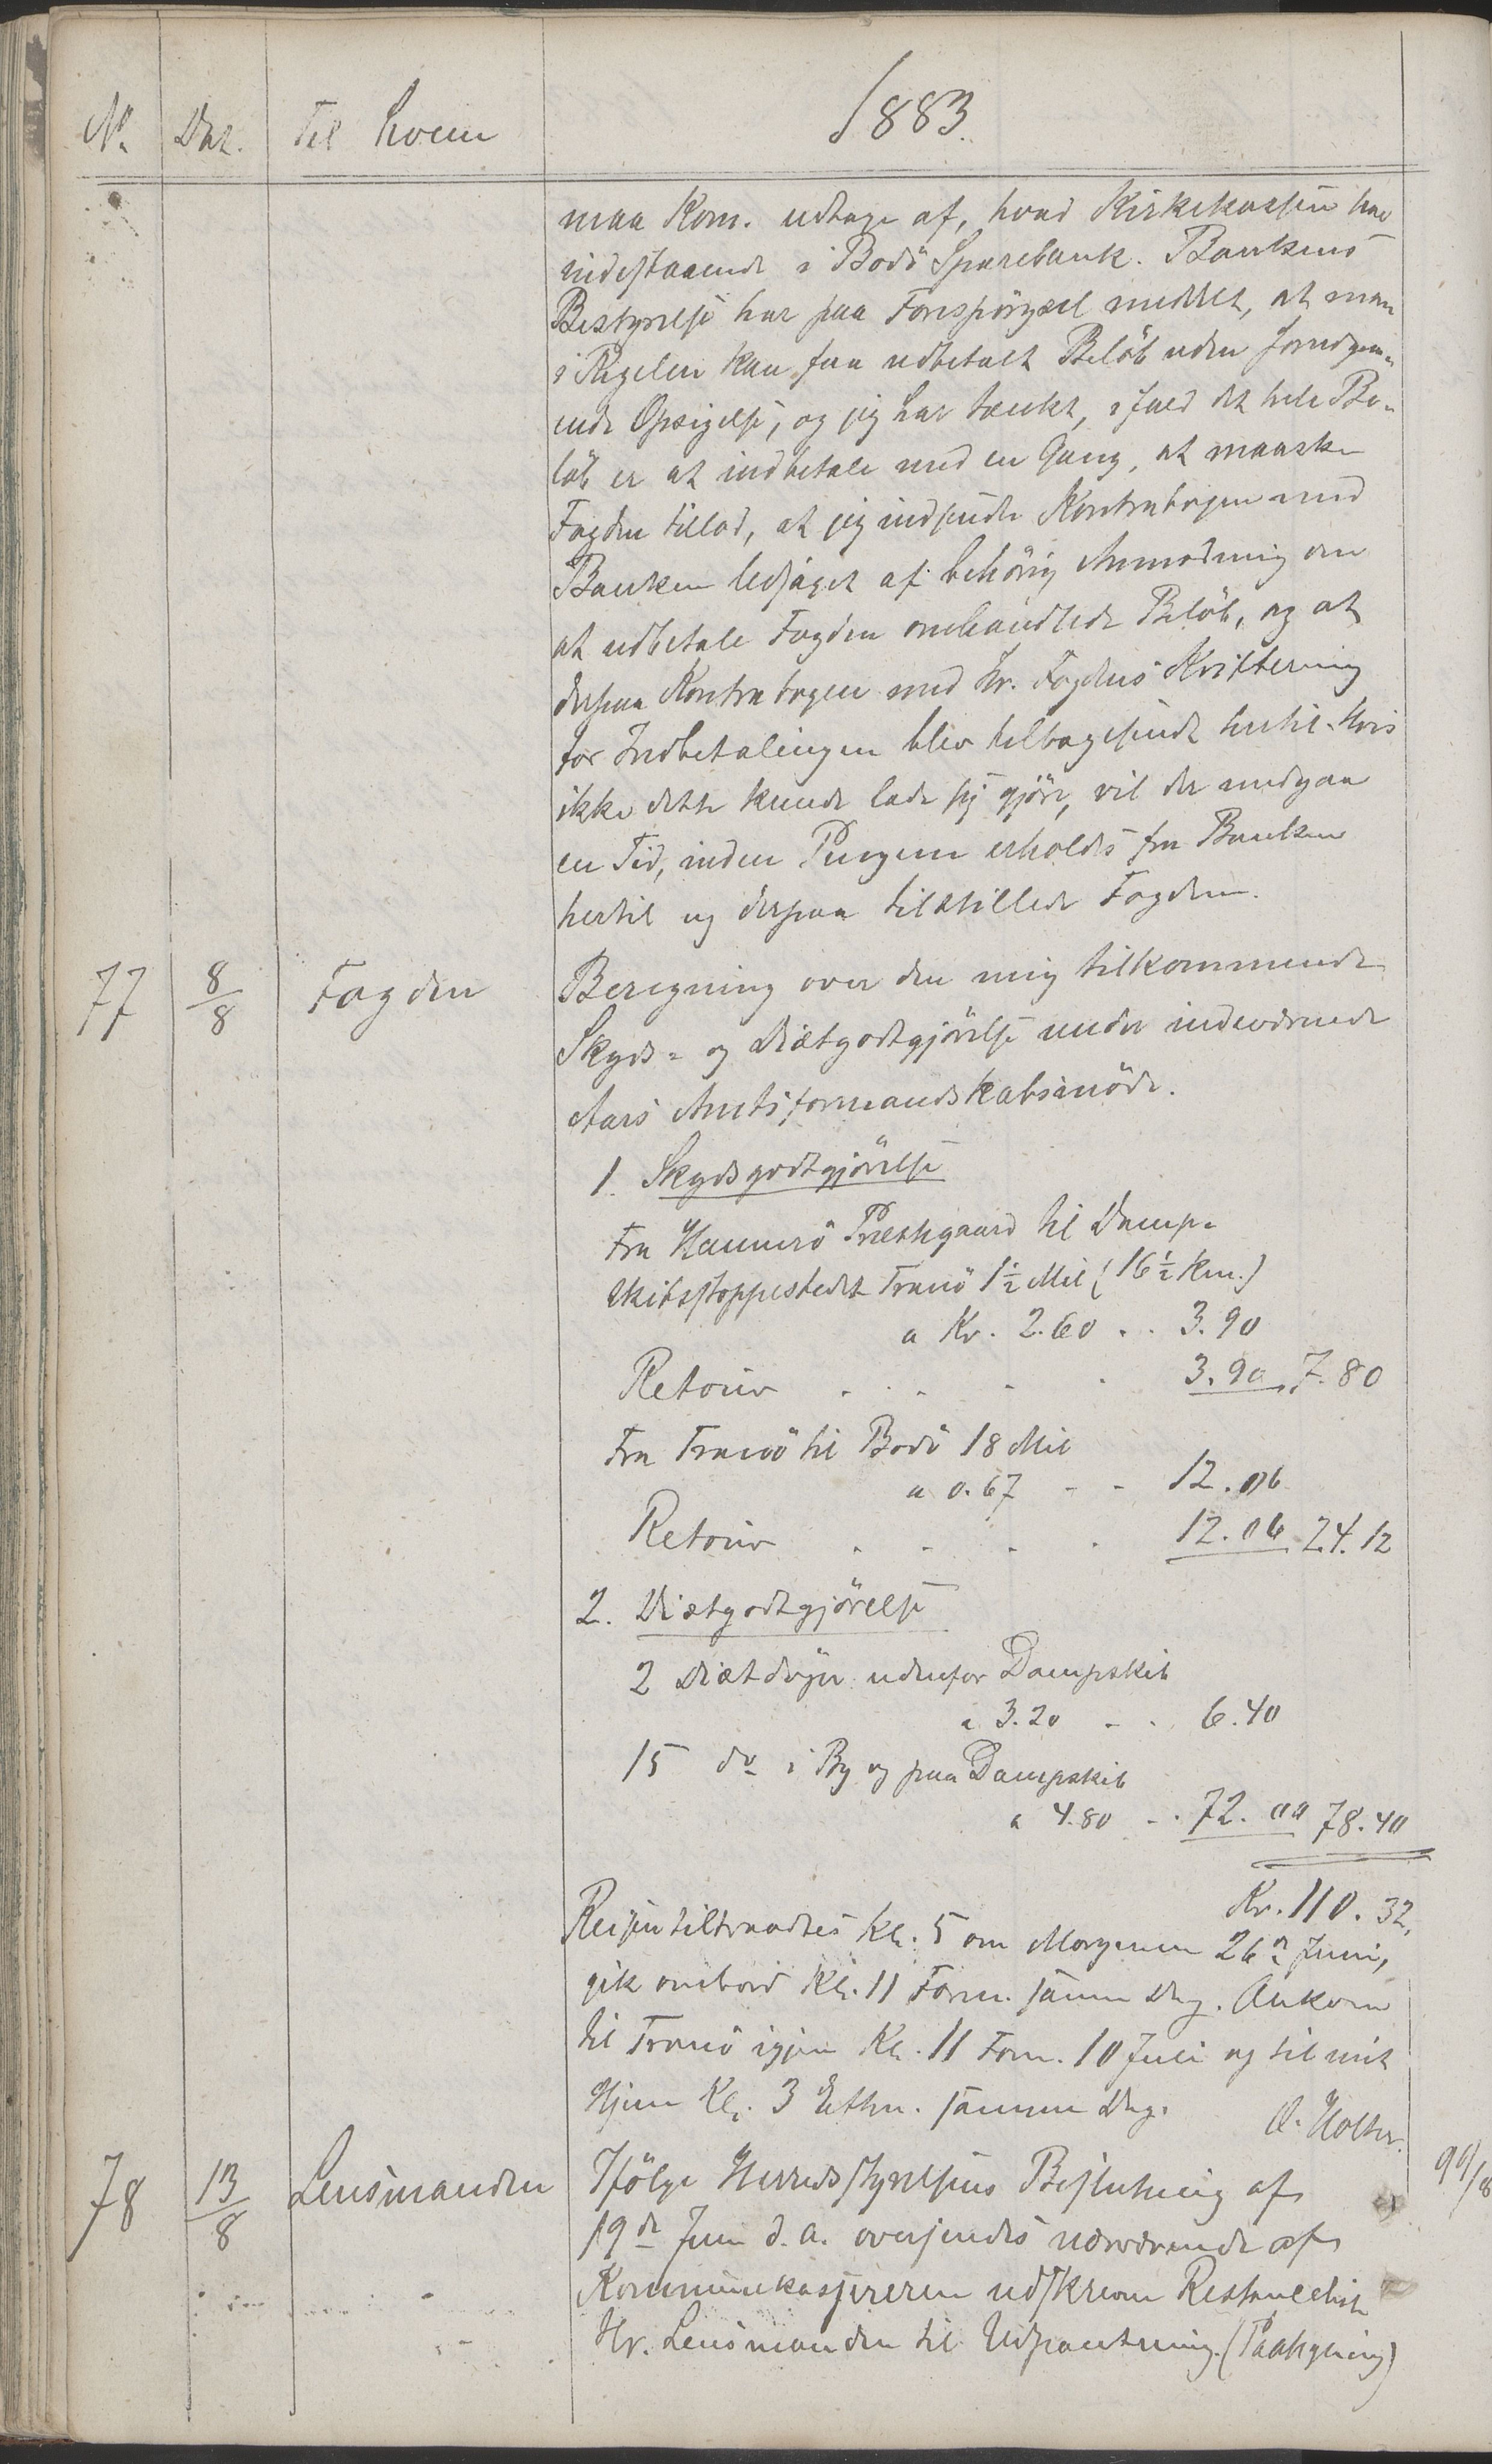 No. Dat. Til hvem 1883.
maa Kom. udtage af, hvad Kirkekassen har
indestaaende i Bodö Sparebank. Bankens
Bestyrelse har paa Forespörgsel meddelt, at man
i Regelen kan faa udbetalt Belöb uden foregaa-
ende Opsigelse, og jeg har tænkt, ifald det hele Be-
löb er at indbetale med en Gang, at maaske
Fogden tillod, at jeg indsendte Kontrabogen med
Banken ledsaget af behörig Anmodning om
at udbetale Fogden omhandlede Belöb, og at
derpaa Kontrabogen med Hr. Fogdens Kvittering
for Indbetalingen blev tilbagesendt hertil. Hvis
ikke dette kunde lade sig gjöre, vil der medgaa
en Tid, inden Pengene erholdes fra Banken
hertil og derpaa tilstillede Fogden.
77 8/8 Fogden Beregning over den mig tilkommende
Skyds- og Diætgodtgjörelse under indeværende
Aars Amtsformandskabsmöde.
1. Skydsgodtgjörelse
Fra Hammerö Præstegaard til Damp-
skibsstoppestedet Tranö 1½ Mil (16½ Km.)
a Kr. 2.60 . . 3.90
Retour . . . . 3.90 7.80
Fra Tranö til Bodö 18 Mil
a 0.67 - - 12.06
Retour . . . . 12.06 24.12
2. Diætgodtgjörelse
2 Diætdögn udenfor Dampskib
a 3.20 - . 6.40
15 do i By og paa Dampskib
a 4.80 - . 72.00 78.40
Kr. 110.32.
Reisen tiltraadtes Kl. 5 om Morgenen 26de Juni,
gik ombord Kl. 11 Form. samme Dag. Ankom
til Tranö igjen Kl. 11 Form. 10 Juli og til mit
Hjem Kl. 3 Efthm. samme Dag.
O. Holter.
78 13/8 Lensmanden Ifölge Herredsstyrelsens Beslutning af
19de Juni d. A. oversendes nærværende af
Kommunekassereren udskrevne Restanceliste
Hr. Lensmanden til Udpantning. (Paategning)